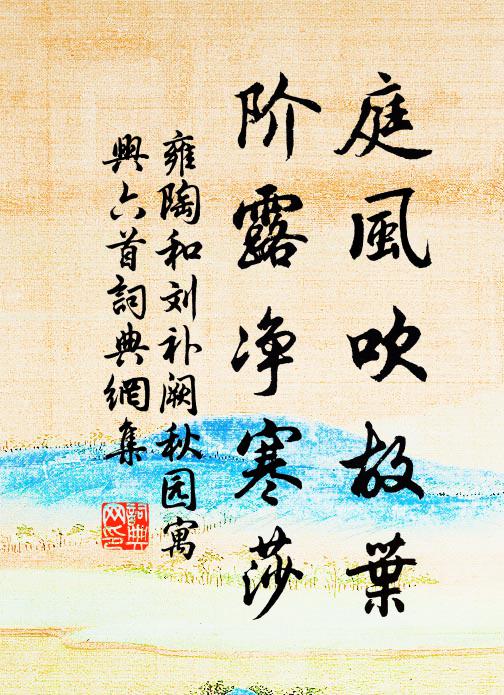 庭風吹故葉
阶露净寒莎
雍陶和刘补阙秋园寓
興六首詞典網集
詞典
网印